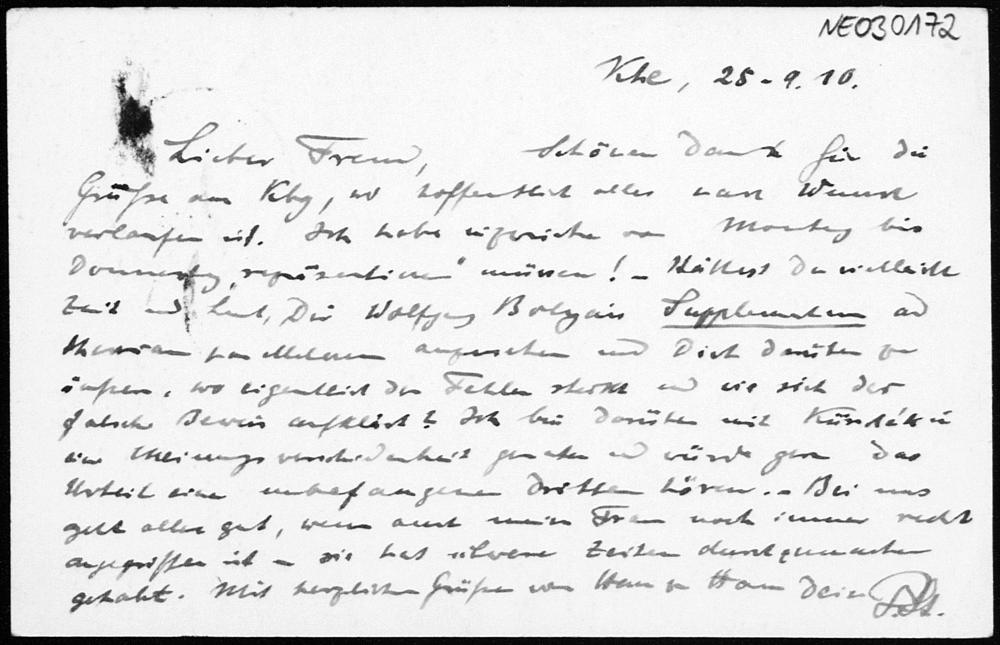 NE030172
Khe, 25.9.10.
Lieber Freund, Schönen Dank für die
Grüsse aus Kbg, wo hoffentlich alles nach Wunsch
verlaufen ist. Ich habe inzwischen von Montag bis
Donnerstag "repräsentieren" müssen! – Hättest Du vielleicht
Zeit und Lust, Dir Wolfgang Bolyais Supplementum ad
theoriam parallelarum anzusehen und Dich darüber zu
äußern, wo eigentlich der Fehler steckt und wie sich der
falsche Beweis aufklärt? Ich bin darüber mit Kürschák in
eine Meinungsverschiedenheit geraten und würde gern das
Urteil eines unbefangenen Dritten hören. – Bei uns
geht alles gut, wenn auch meine Frau noch immer recht
angegriffen ist – sie hat schwere Zeiten durchzumachen
gehabt. Mit herzlichen Grüßen von Haus zu Haus Dein